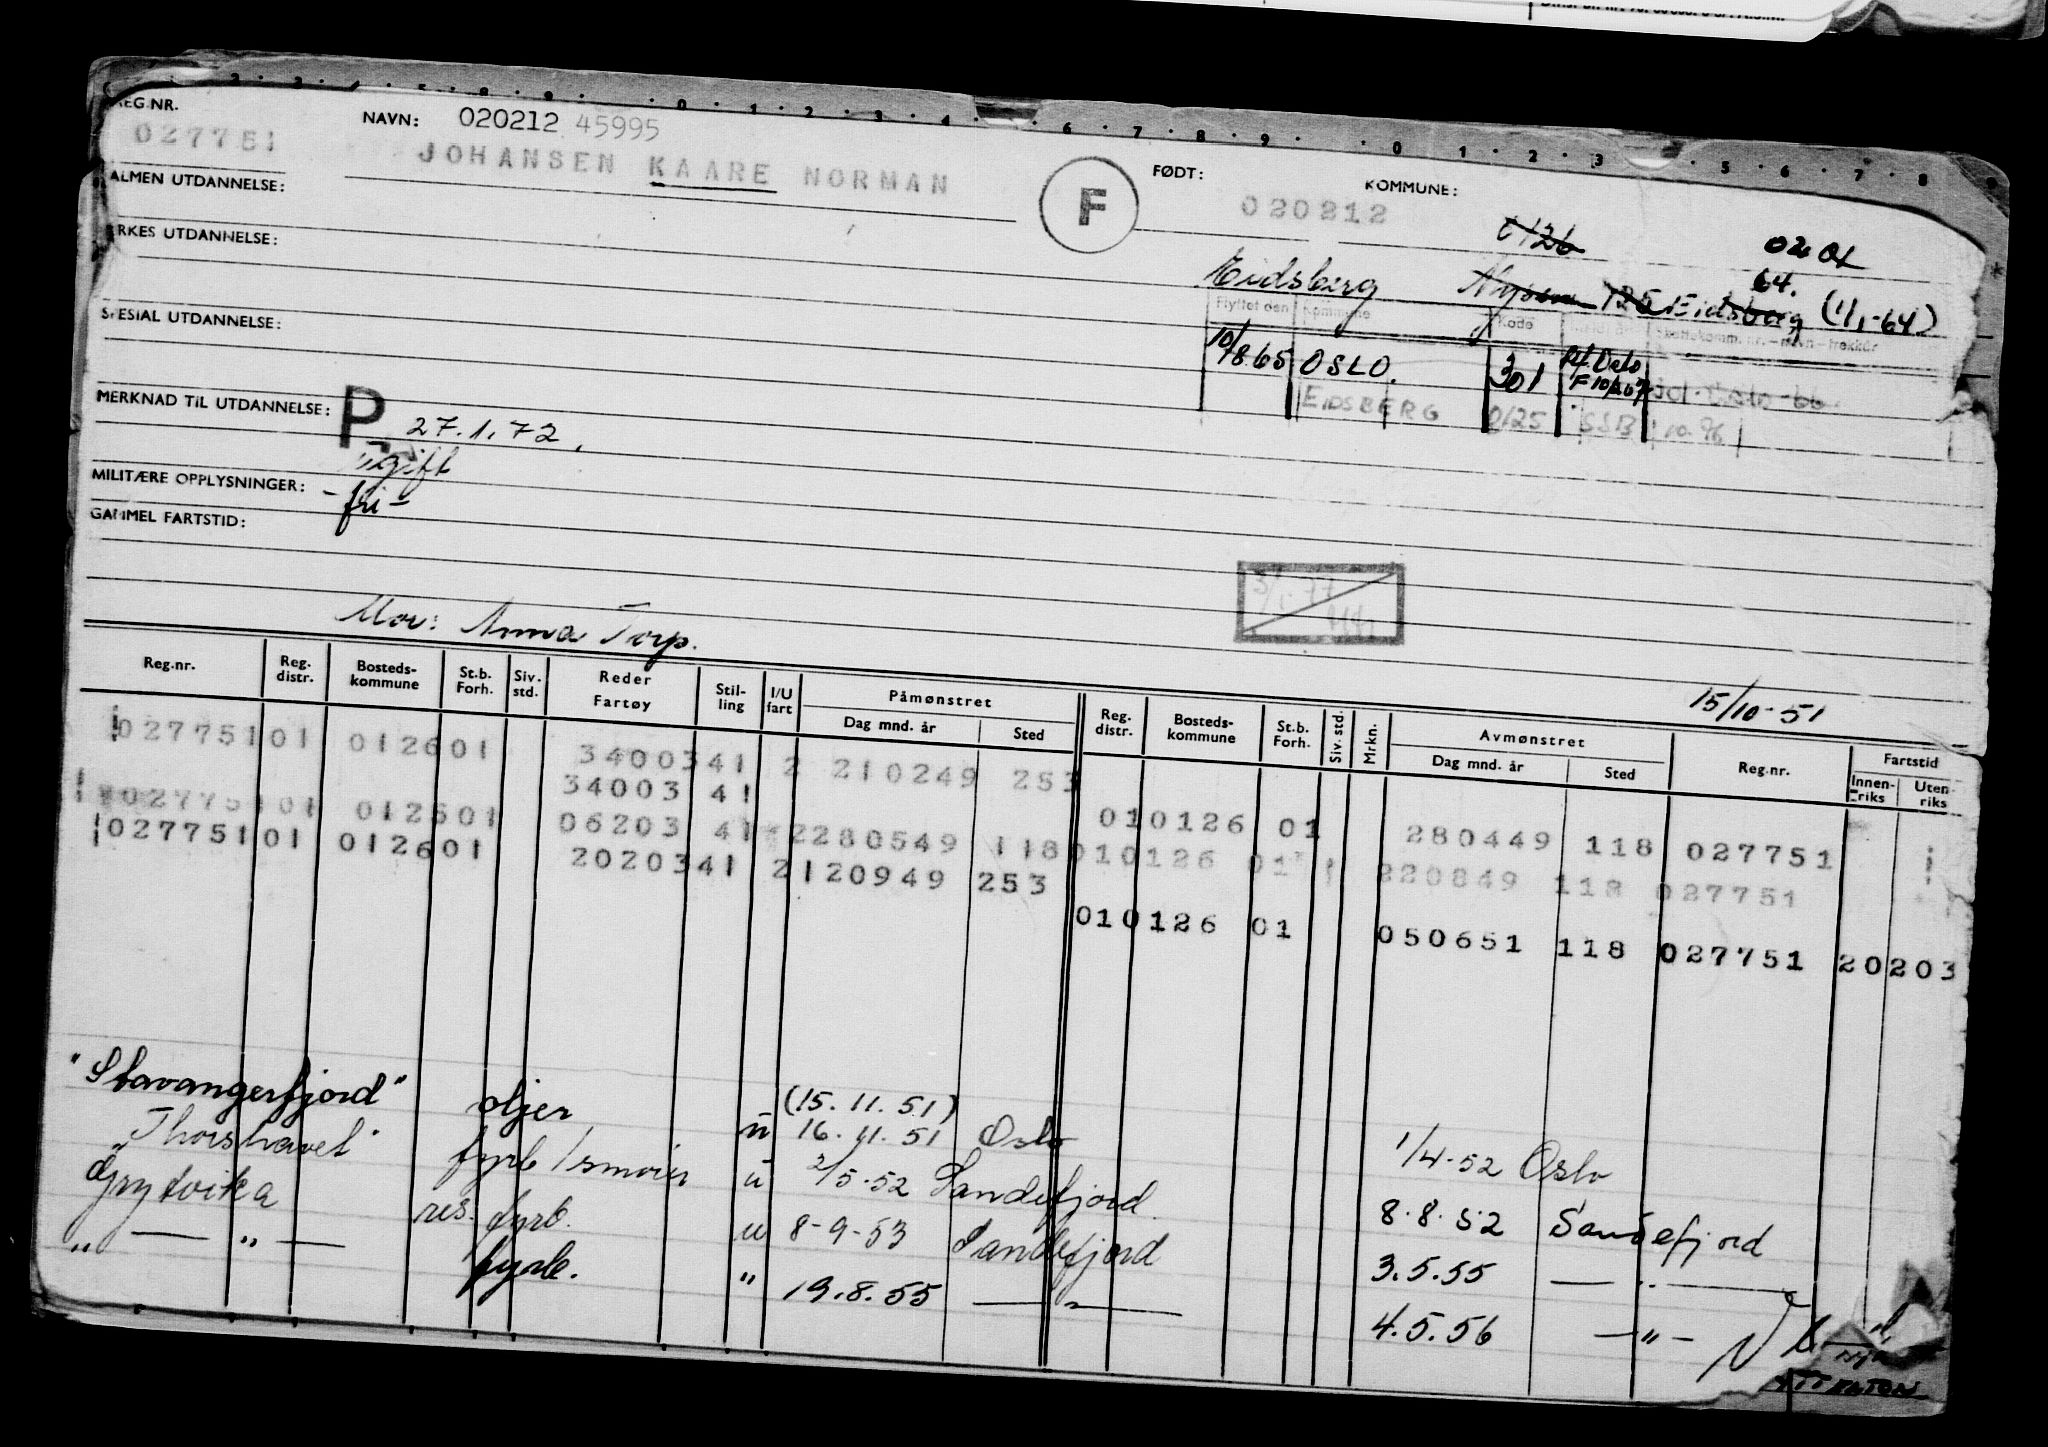 REG.NR. NAVN: 020212 45995
027751 JOHANSEN KAARE NORMAN F FØDT: 020212 KOMMUNE:
ALMEN UTDANNELSE:
0126 0201
YRKES UTDANNELSE:
Eidsberg 125 Eidsberg 64. (1/1-64)
Flyttet den Kommune Kode
SPESIAL UTDANNELSE:
10/8 65 OSLO. 301
EIDSBERG 0125 SSB 10.76
MERKNAD TIL UTDANNELSE: P 27.1.72.
gift
MILITÆRE OPPLYSNINGER: - fri -
GAMMEL FARTSTID:
3/1-77
Mor: Anna Torp.
15/10-51
Reg.nr. Reg. distr. Bosteds-kommune St.b. Forh. Siv. std. Reder Fartøy Stil-ling I/U fart Påmønstret Dag mnd. år Sted Reg. distr. Bosteds-kommune St.b. Forh. Siv. std. Mrkn. Avmønstret Dag mnd. år Sted Reg.nr. Fartstid Innen-riks Uten-riks
027751 01 0126 01 34003 41 2 210249 253
34003 41 01 0126 01 280449 118 027751
027751 01 0126 01 06203 41 2 280549 118 01 0126 01 220849 118 027751
027751 01 0126 01 20203 41 2 120949 253
01 0126 01 050651 118 027751 20203
"Stavangerfjord" oljer u (15.11.51) 16.11.51 Oslo 1/4-52 Oslo
"Thorshavet" fyrb/smører u 2/5-52 Sandefjord. 8.8.52 Sandefjord
Grytvika res. fyrb. u 8-9-53 Sandefjord 3.5.55 — " —
" — " — fyrb. " 19.8.55 — " — 4.5.56 — " —